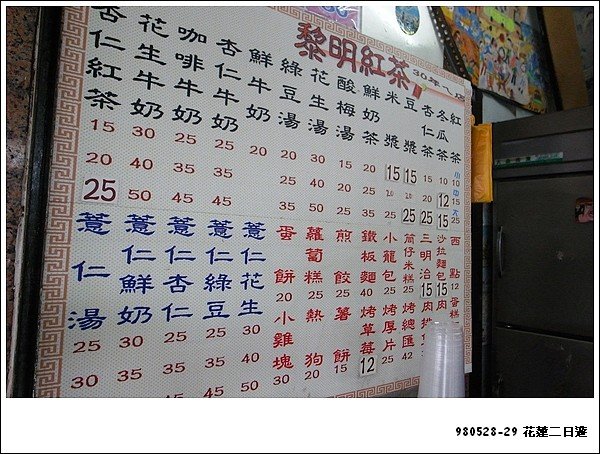 黎明紅茶 30年老店
紅茶 小10 中15 大25
冬瓜茶 10 12 15
杏仁茶 15 20 25
豆漿 15 20 25
米漿 15 20
鮮奶茶 20 25 35
酸梅湯 15 20 25
花生湯 30 35 50
綠豆湯 20 25 35
鮮牛奶 20
杏仁牛奶 25 35 45
咖啡牛奶 25 35 45
花生牛奶 30 40 50
杏仁紅茶 15 20 25
西點 12
沙拉麵包 15
三明治 15
筒仔米糕 25
小籠包
鐵板麵 40
煎餃 25
蘿蔔糕 25
蛋餅 20
薏仁花生
薏仁綠豆 25
薏仁杏仁 25
薏仁鮮奶 25 35
薏仁湯 25 30
蛋糕
烤總匯 42
烤厚片 25
烤草莓 12
薯餅 15
熱狗 20
小雞塊 30
980528-29 花蓮二日遊